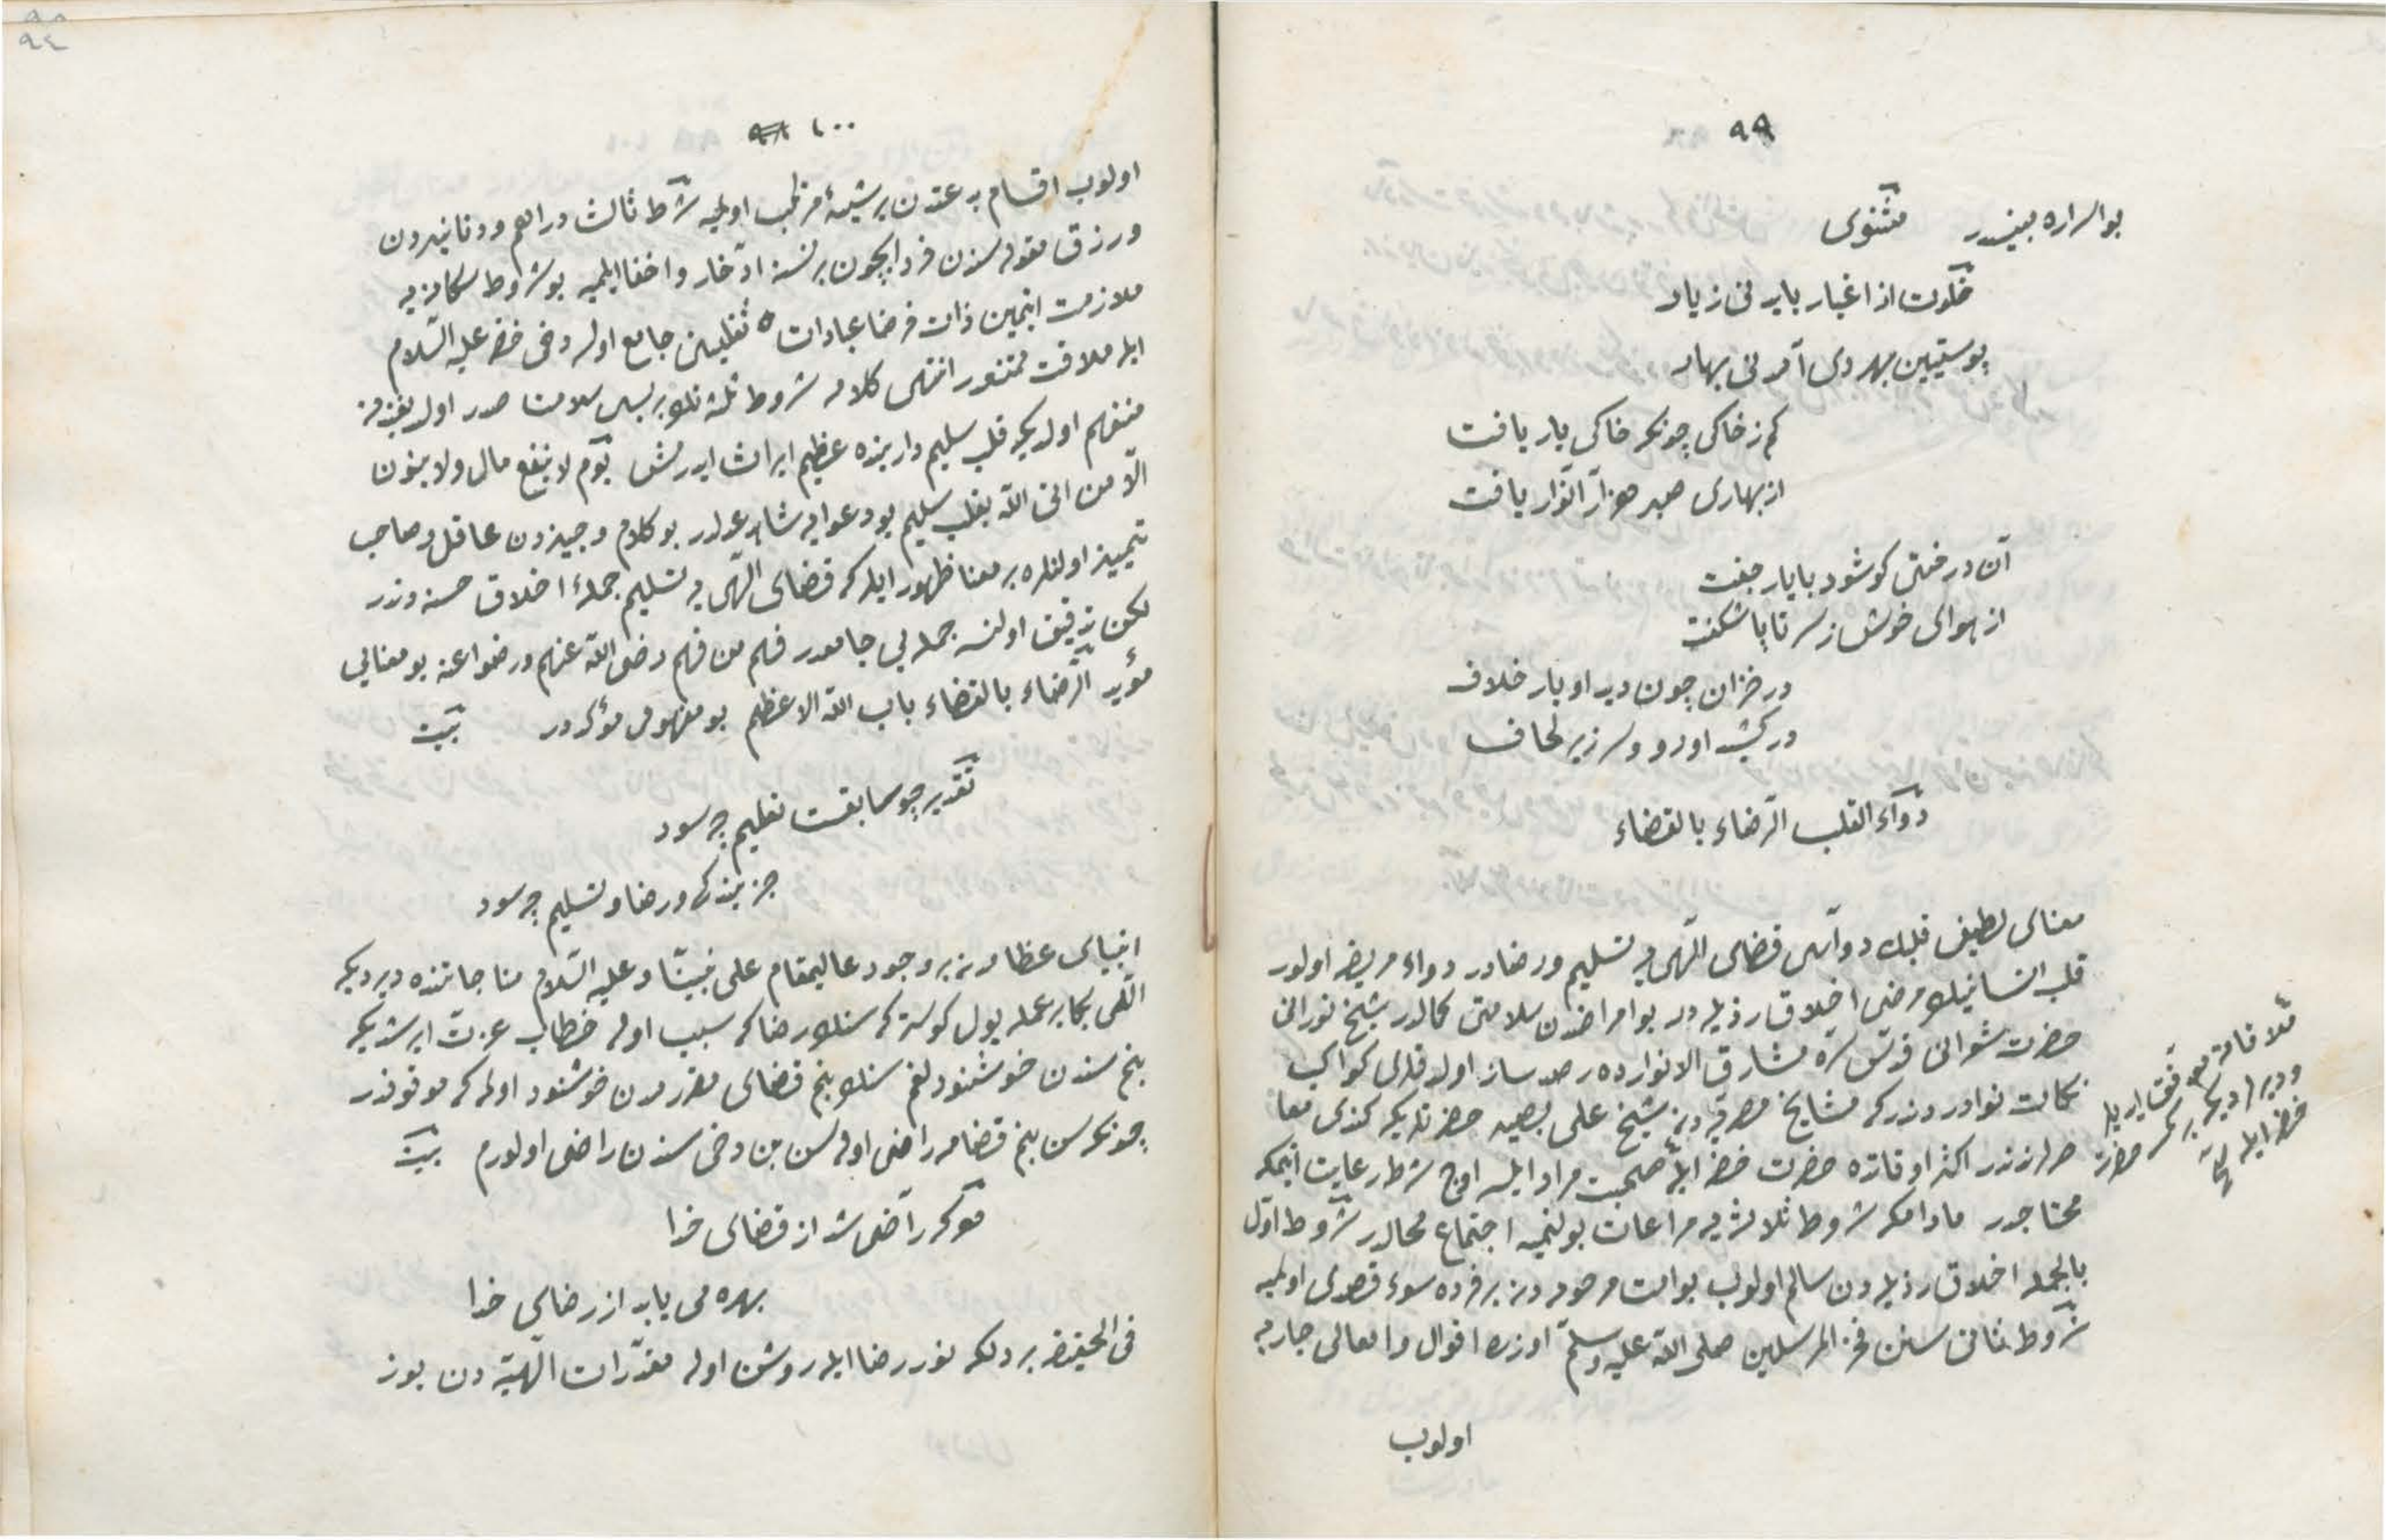 ٩٩
بو اسراره بيندر مثنوى
خلوت از اغيار بايد نى ز يار
پوستين بهر دى آمد نى بهار
كم ز خاكى چونكه خاكى يار يافت
از بهارى صد هزار انوار يافت
آن درختى كو شود با يار جفت
از هواى خوش ز سر تا پا شكفت
در خزان چون ديد او يار خلاف
در كشيد او رو و سر زير لحاف
دواء القلب الرضاء بالقضاء
معناى لطيفى قلبك دواسى قضاى الهى يه تسليم ورضادر دواء مريضه اولور
قلب انسانينك مرضى اخلاق رذيله در بو امراضدن سلامتى كمالدر شيخ نورانى
حضرت شعرانى قدس سره مشارق الانوارده رصد ساز اولدقلرى كواكب
نكات نوادر دندركه مشايخ مصريه دن شيخ على بصير حضرتلريكه كندى معا
صرلرندندر اكثر اوقاتده حضرت خضر ايله صحبت مراد ايلسه اوچ شرطه رعايت ايتمكه
محتاجدر مادامكه شروط ثلاثه يه مراعات بولنميه اجتماع محالدر شروط اول
بالجمله اخلاق رذيله دن سالم اولوب بو امت مرحومه دن بر فرده سوء قصدى اولميه
شروط ثانى سنن فخر المرسلين صلى الله عليه وسلم اوزره اقوال وافعالى جاريه
ملاقاته موفق ايديله
وديرلرديكه بر كمسه حضرت
خضر ايله
اولوب
١٠٠ ٩٨
اولوب اقسام بدعتدن بر شيئه مرتكب اولميه شرط ثالث دراهم ودنانيردن
ورزق مقوله سندن فردا ايچون بر نسنه ادخار واخفا ايلميه بو شروط مكانزيه
ملازمت ايتمين ذات فرضا عبادات ثقلينى جامع اولسه دخى خضر عليه السلام
ايله ملاقات ممتنعدر انتهى كلامه شروط ثلثه نك برسى سلامت صدر اولديغندن
منفهم اولديكه قلب سليم دارينده عظيم ايراث ايدرمش يوم لا ينفع مال ولا بنون
الا من اتى الله بقلب سليم بو دعوايه شاهد عدلدر بو كلام وجيزدن عاقل وصاحب
تمييز اولنلره بر معنا ظهور ايلدكه قضاى الهى يه تسليم جملهٔ اخلاق حسنه دندر
لكن تدقيق اولنسه جمله يى جامعدر فهم من فهم رضى الله عنهم ورضوا عنه بو معنايى
مؤيد الرضاء بالقضاء باب الله الاعظم بو مفهومى مؤكددر بيت
تقدير چو سابقست تعليم چه سود
جز بندگى ورضا وتسليم چه سود
انبياى عظامدن بر وجود عاليمقام على نبينا وعليه السلام مناجاتنده ديرديكه
الهى بكا بر عمله يول كوستر كه سنك رضاكه سبب اوله خطاب عزت ايرشديكه
بنم سندن خوشنودلغم سنك بنم قضاى مقررمدن خوشنود اولمكه موقوفدر
چونكه سن بنم قضامه راضى اوله سن بن دخى سندن راضى اولورم بيت
هوكه راضى شد از قضاى خدا
بهره مى يابد از رضاى خدا
فى الحقيقه بر دلكه نور رضا ايله روشن اوله مقدرات الهيه دن يوز